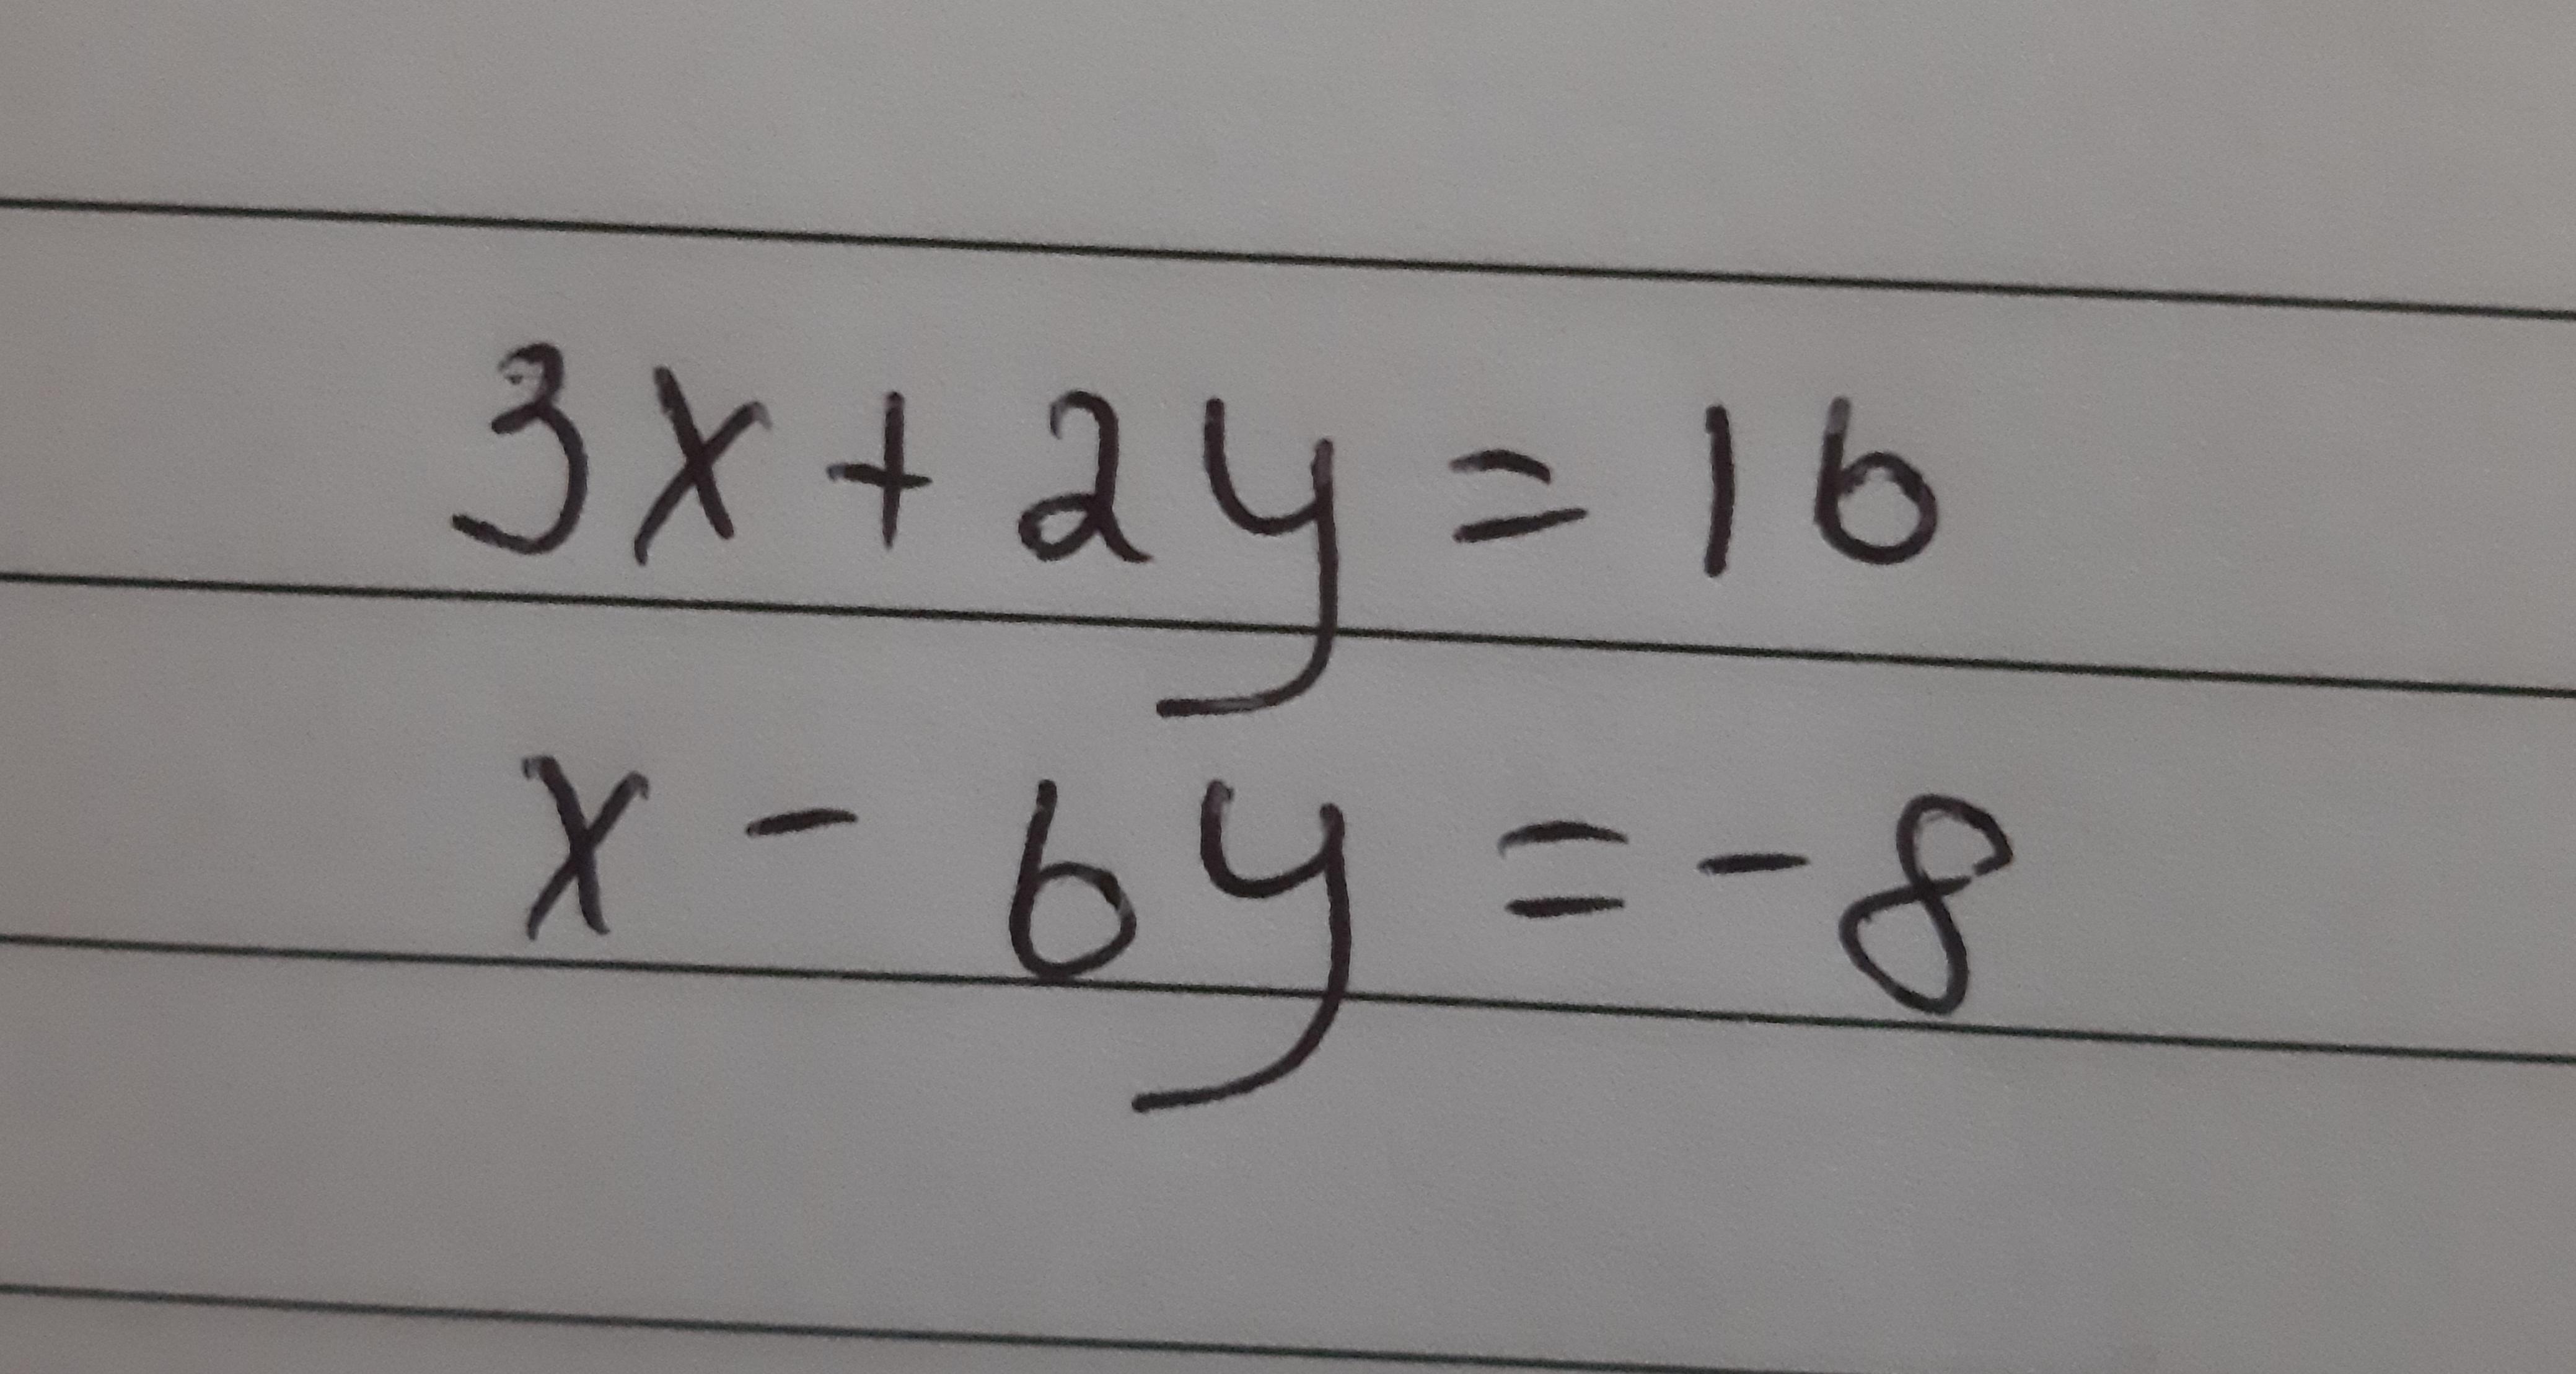 3x + 2y = 16
x - 6y = -8